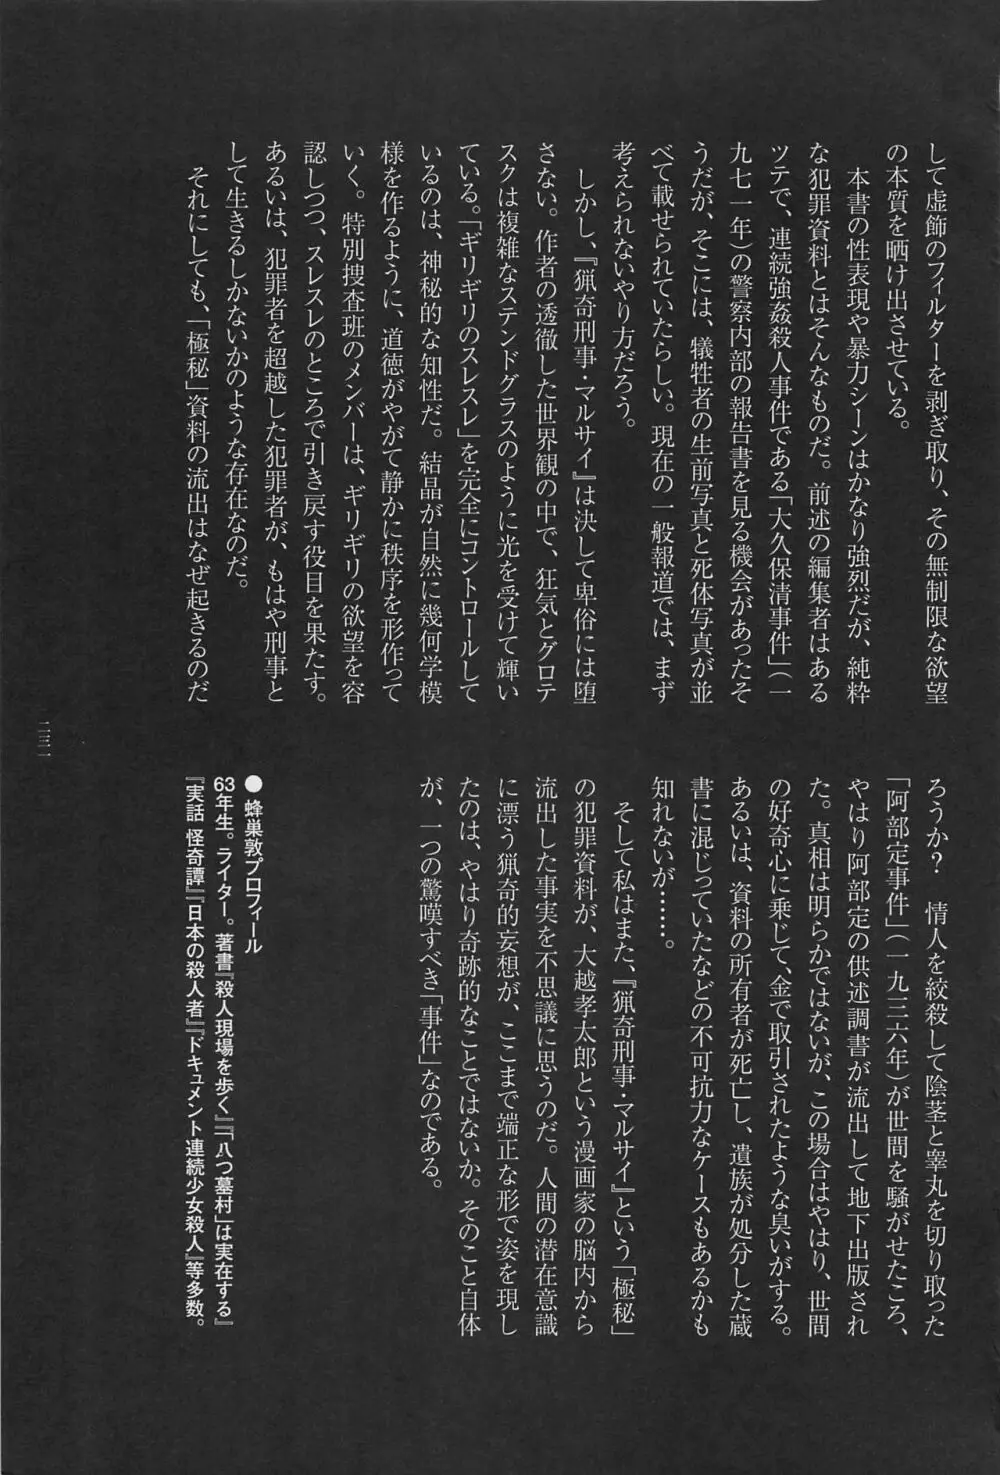 して虚飾のフィルターを剥ぎ取り、その無制限な欲望
の本質を晒け出させている。
本書の性表現や暴力シーンはかなり強烈だが、純粋
な犯罪資料とはそんなものだ。前述の編集者はある
ツテで、連続強姦殺人事件である「大久保清事件」（一
九七一年）の警察内部の報告書を見る機会があったそ
うだが、そこには、犠牲者の生前写真と死体写真が並
べて載せられていたらしい。現在の一般報道では、まず
考えられないやり方だろう。
しかし、『猟奇刑事・マルサイ』は決して卑俗には堕
さない。作者の透徹した世界観の中で、狂気とグロテ
スクは複雑なステンドグラスのように光を受けて輝い
ている。「ギリギリのスレスレ」を完全にコントロールして
いるのは、神秘的な知性だ。結晶が自然に幾何学模
様を作るように、道徳がやがて静かに秩序を形作って
いく。特別捜査班のメンバーは、ギリギリの欲望を容
認しつつ、スレスレのところで引き戻す役目を果たす。
あるいは、犯罪者を超越した犯罪者が、もはや刑事と
して生きるしかないかのような存在なのだ。
それにしても、「極秘」資料の流出はなぜ起きるのだ
ろうか？　情人を絞殺して陰茎と睾丸を切り取った
「阿部定事件」（一九三六年）が世間を騒がせたころ、
やはり阿部定の供述調書が流出して地下出版され
た。真相は明らかではないが、この場合はやはり、世間
の好奇心に乗じて、金で取引されたような臭いがする。
あるいは、資料の所有者が死亡し、遺族が処分した蔵
書に混じっていたなどの不可抗力なケースもあるかも
知れないが……。
そして私はまた、『猟奇刑事・マルサイ』という「極秘」
の犯罪資料が、大越孝太郎という漫画家の脳内から
流出した事実を不思議に思うのだ。人間の潜在意識
に漂う猟奇的妄想が、ここまで端正な形で姿を現し
たのは、やはり奇跡的なことではないか。そのこと自体
が、一つの驚嘆すべき「事件」なのである。
●蜂巣敦プロフィール
63年生。ライター。著書『殺人現場を歩く』『「八つ墓村」は実在する』
『実話 怪奇譚』『日本の殺人者』『ドキュメント連続少女殺人』等多数。